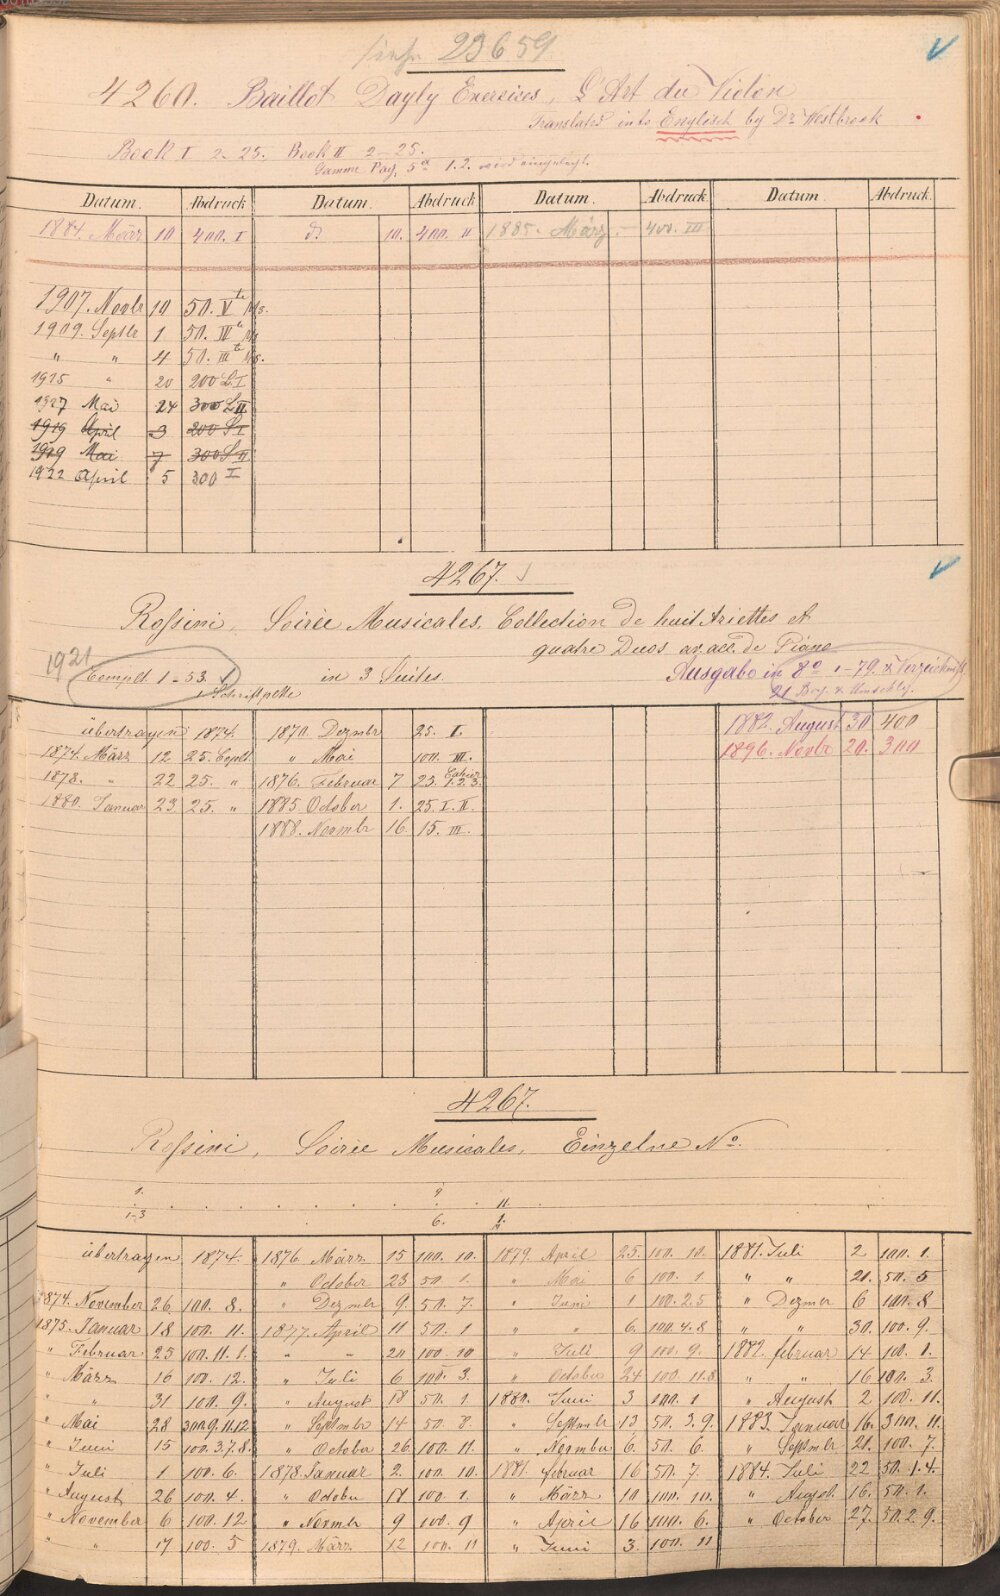 23659.
4260. Baillot Dayly Exercices, L'Art du Violon
Translated into Englisch by Dr Westbrook
Book I 2-25. Book II 2-25.
Gamme Pag. 5a 1.2. wird eingelegt.
Datum. Abdruck Datum. Abdruck Datum. Abdruck Datum. Abdruck.
1884. März 10 400. I d. 10. 400. II 1885. März. - 400. III
1907. Novbr 10 50. Vte
1909. Septbr 1 50. IVte
" " 4 50. IIIte
1925 " 20 200 L I
1927 Mai 24 300 L II
1919 April 3 200 L I
1929 Mai 7 300 L II
1922 April 5 300 I
4267.
Rossini, Soirée Musicales. Collection de huit Ariettes et
quatre Duos av. acc. de Piano
1921
Complt. 1-53. in 3 Suites. Ausgabe in 8o 1-79. & Verzeichniß
1 Schriftplatte 21 Bog. & Umschlg.
übertragen 1874. 1870. Dezmbr 25. I. 1882. August 30 400
1874. März 12 25. Coplt. " Mai 100. III. 1896. Novbr 20. 300
1878. " 22 25. " 1876. Februar 7 23. Cahier 1.2.3.
1880. Januar 23 25. " 1885. October 1. 25. I. II.
1888. Novmbr 16. 15. III.
4267.
Rossini, Soirée Musicales, Einzelne No.
1. 9.
1-3 6. 11.
übertragen 1874. 1876. März 15 100. 10. 1879. April 25. 100. 10. 1881. Juli 2 100. 1.
" October 23 50. 1. " Mai 6 100. 1. " " 21. 50. 5
1874. November 26. 100. 8. " Dezmbr 9. 50. 7. " Juni 1 100. 2.5 " Dezmer 6 100. 8
1875. Januar 18 100. 11. 1877. April 11 50. 1 " " 6. 100. 4. 8 " " 30. 100. 9.
" Februar 25 100. 11. 1. " " 20 100. 10 " Juli 9 100. 9. 1882. februar 14 100. 1.
" März 16 100. 12. " Juli 6 100. 3. " October 24 100. 11.8. " " 16 100. 3.
" " 31 100. 9. " August 18 50. 1. 1880. Juni 3 100. 1 " August 2 100. 11.
" Mai 28 300. 9. 11. 12. " Septmbr 14 50. 8. " Septmbr 13 50. 3. 9. 1883. Januar 16. 300. 11.
" Juni 15 100. 3. 7. 8. " October 26. 100. 11. " Novmber 6. 50. 6. " Septmbr 21. 100. 7.
" Juli 1 100. 6. 1878. Januar 2. 100. 10. 1881. februar 16 50. 7. 1884. Juli 22 50. 1. 4.
" August 26 100. 4. " October 18 100. 1. " März 10 100. 10. " August. 16. 50. 1.
" November 6 100. 12 " Novmbr 9 100. 9 " April 16 100. 6. " October 27. 50. 2. 9.
" " 17 100. 5 1879. März 12 100. 11 " Juni 3. 100. 11